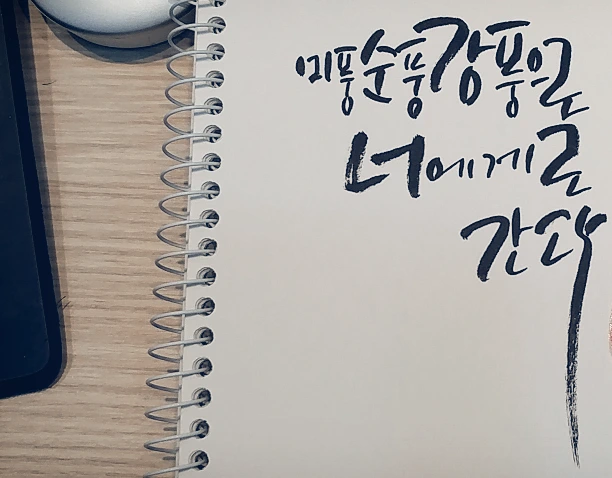 미풍순풍강풍으로
너에게로
간다